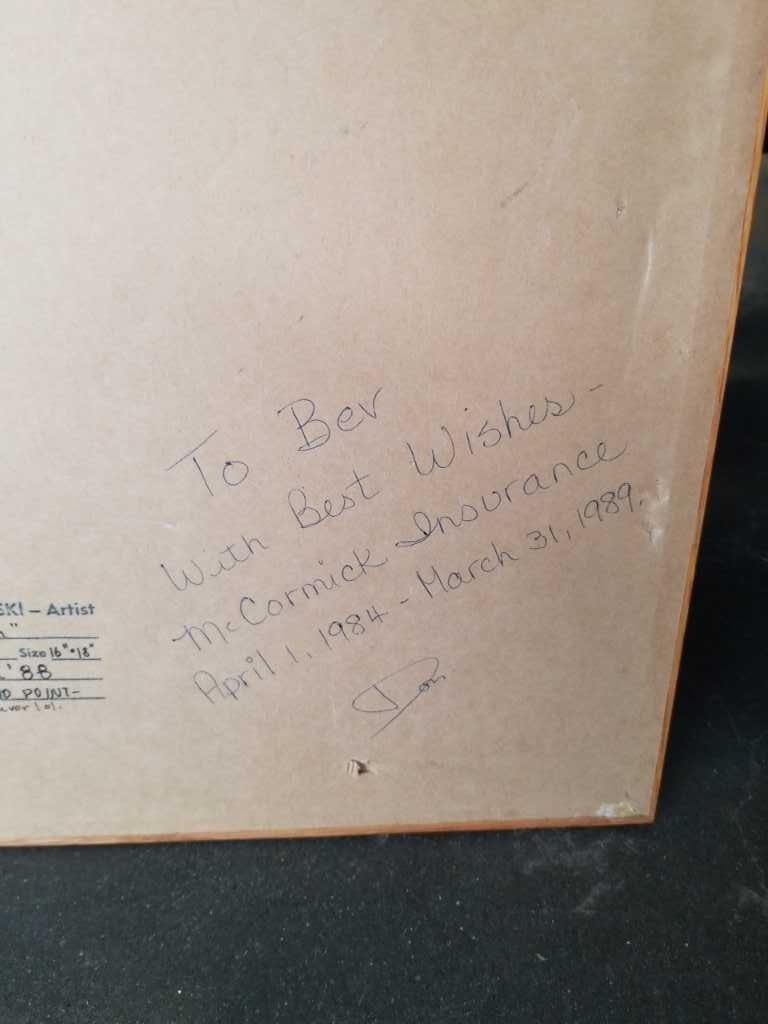 To Bev
With Best Wishes -
McCormick Insurance
April 1, 1984 - March 31, 1989.
Don
SKI — Artist
Size 16" • 18"
'88
POINT-